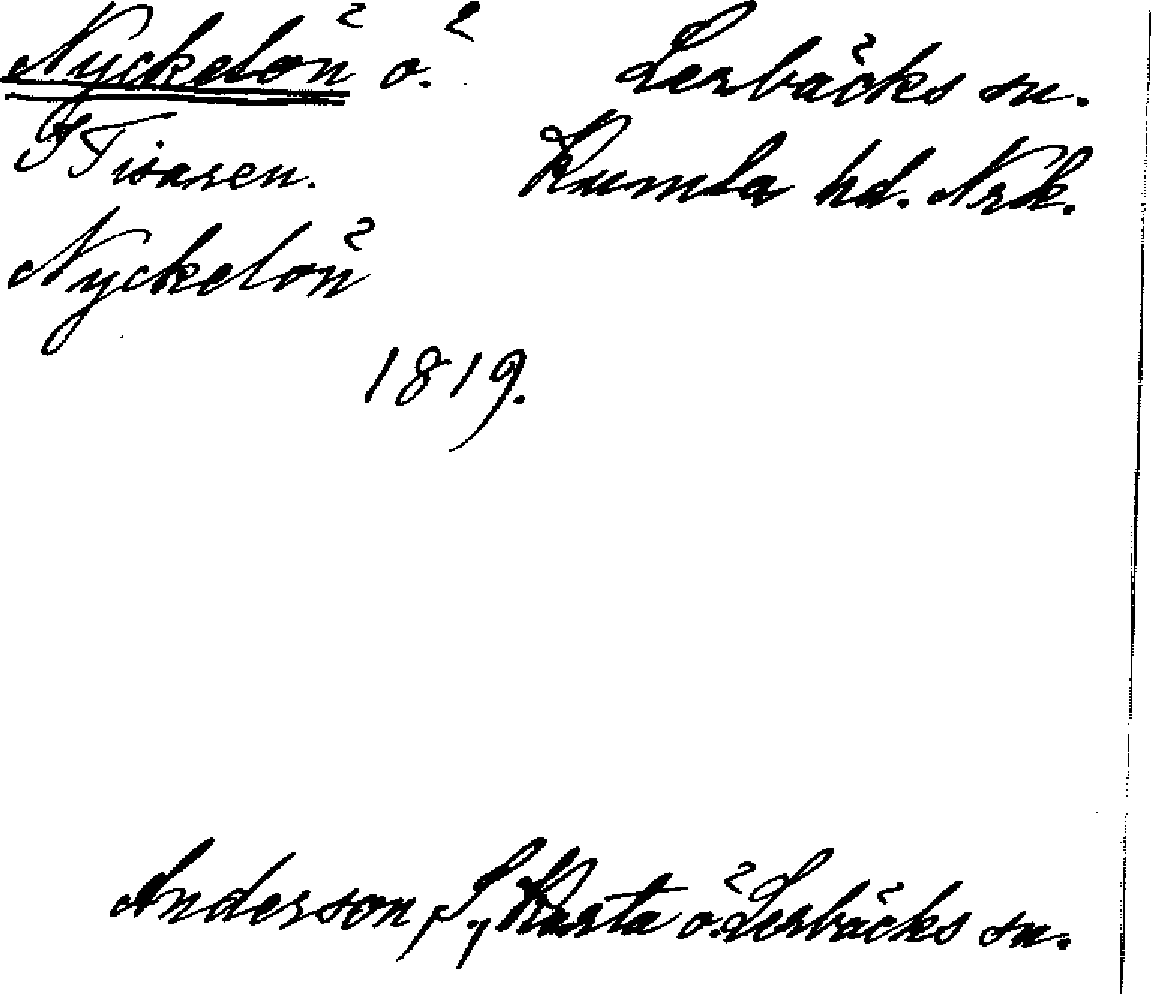 Nyckelön ö. Lerbäcks sn.
I Tisaren. Kumla hd. Nrk.
Nyckelön
1819.
Anderson, S., Karta ö. Lerbäcks sn.